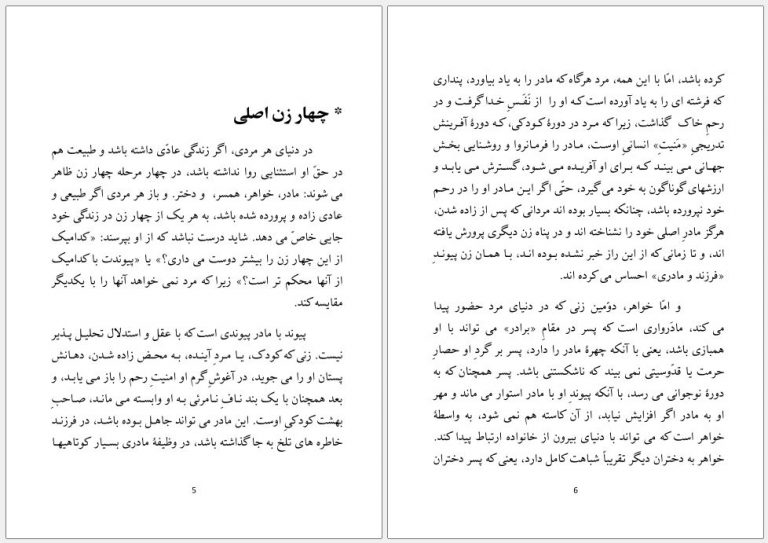 * چهار زن اصلی
در دنیای هر مردی، اگر زندگی عادّی داشته باشد و طبیعت هم
در حقّ او استثنایی روا نداشته باشد، در چهار مرحله چهار زن ظاهر
می شوند: مادر، خواهر، همسر، و دختر. و باز هر مردی اگر طبیعی و
عادی زاده و پرورده شده باشد، به هر یک از چهار زن در زندگی خود
جایی خاصّ می دهد. شاید درست نباشد که از او بپرسند: «کدامیک
از این چهار زن را بیشتر دوست می داری؟» یا «پیوندت با کدامیک
از آنها محکم تر است؟» زیرا که مرد نمی خواهد آنها را با یکدیگر
مقایسه کند.
پیوند با مادر پیوندی است که با عقل و استدلال تحلیل پذیر
نیست. زنی که کودک، یـا مـردِ آینـده، بـه محـض زاده شـدن، دهـانش
پستان او را می جوید، در آغوشِ گرم او امنیتِ رحم را باز می یابـد، و
بعد همچنان با یک بندِ نـافِ نـامرئی بـه او وابسـته مـی مانـد، صـاحبِ
بهشت کودکیِ اوست. این مادر می تواند جاهـل بـوده باشـد، در فرزنـد
خاطره های تلخ به جا گذاشته باشد، در وظیفۀ مادری بسـیار کوتاهیهـا
5
کرده باشد، امّا با این همه، مرد هرگاه که مادر را به یاد بیاورد، پنداری
که فرشته ای را به یاد آورده است که او را از نَفَسِ خـدا گرفـت و در
رحمِ خاک گذاشت، زیرا که مرد در دورۀ کـودکی، کـه دورۀ آفـرینش
تدریجیِ «مَنیتِ» انسانیِ اوست، مـادر را فرمـانروا و روشـنایی بخـش
جهـانی مـی بینـد کـه بـرای او آفریـده مـی شـود، گسـترش مـی یابـد و
ارزشهای گوناگون به خود می گیرد، حتّی اگر ایـن مـادر او را در رحـم
خود نپرورده باشد، چنانکه بسیار بوده اند مردانی که پس از زاده شدن،
هرگز مادرِ اصلی خود را نشناخته اند و در پناه زن دیگری پرورش یافته
اند، و تا زمانی که از این راز خبر نشده بـوده انـد، بـا همـان زن پیونـدِ
«فرزند و مادری» احساس می کرده اند.
و امّا خواهر، دوّمین زنی که در دنیای مرد حضور پیدا
می کند، مادَرواری است که پسر در مقامِ «برادر» می تواند با او
همبازی باشد، یعنی با آنکه چهرۀ مادر را دارد، پسر بر گردِ او حصارِ
حرمت یا قدّوسیتی نمی بیند که ناشکستنی باشد. پسر همچنان که به
دورۀ نوجوانی می رسد، با آنکه پیوندِ او با مادر استوار می ماند و مهر
او به مادر اگر افزایش نیابد، از آن کاسته هم نمی شود، به واسطۀ
خواهر است که می تواند با دنیای بیرون از خانواده ارتباط پیدا کند.
خواهر به دختران دیگر تقریباً شباهت کامل دارد، یعنی که پسر دختران
6